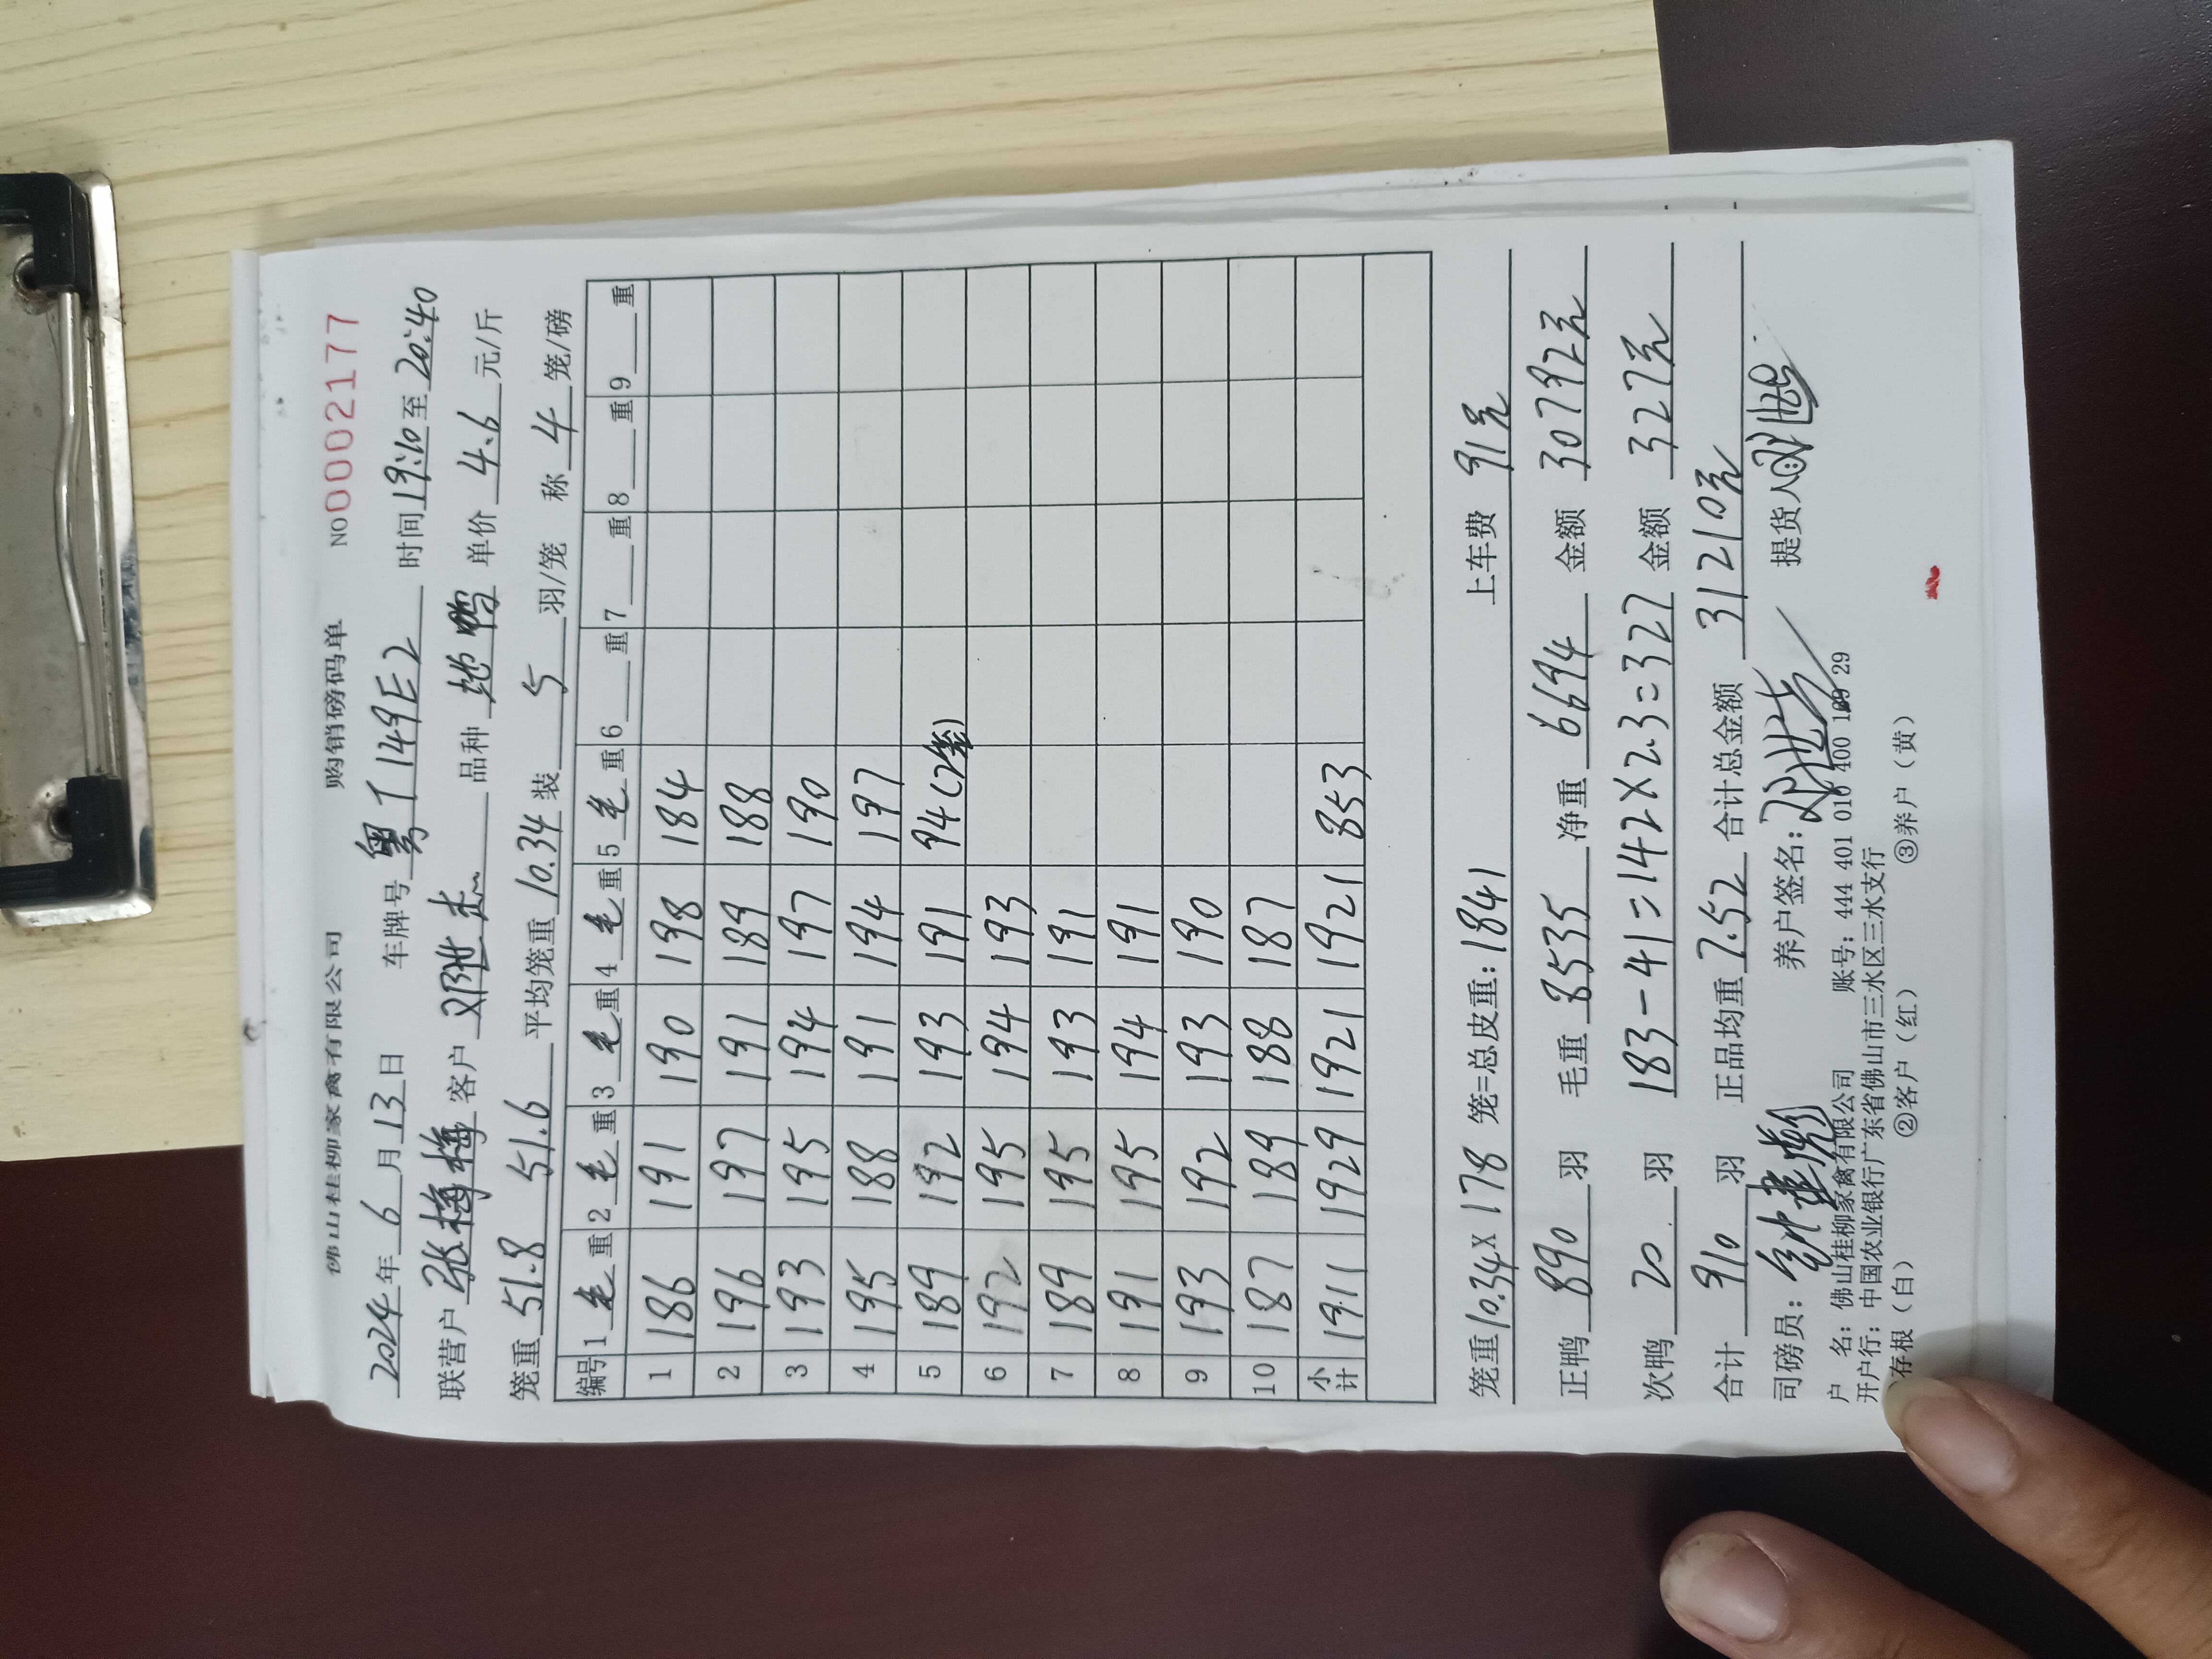 佛山桂柳家禽有限公司 购销磅码单 NO 0002177
2024年6月13日 车牌号 粤T149E2 时间19:10至20:40
联营户 张梅梅 客户 邓世杰 品种 地鸭 单价 4.6 元/斤
笼重 51.8 51.6 平均笼重 10.34 装 5 羽/笼 称 4 笼/磅
编号 1毛重 2毛重 3毛重 4毛重 5毛重 6 重 7 重 8 重 9 重
1 186 191 190 198 184
2 196 197 191 189 188
3 193 195 194 197 190
4 195 188 191 194 197
5 189 192 193 191 94(2笼)
6 192 195 194 193
7 189 195 193 191
8 191 195 194 191
9 193 192 193 190
10 187 189 188 187
小计 1911 1929 1921 1921 853
笼重10.34×178 笼=总皮重:1841 上车费 91元
正鸭 890 羽 毛重 8535 净重 6694 金额 30792元
次鸭 20 羽 183-41=142×2.3=327 金额 327元
合计 910 羽 正品均重 7.52 合计总金额 31210元
司磅员: 养户签名: 提货人:
户 名:佛山桂柳家禽有限公司 账号:444 401 010 400 109 29
开户行:中国农业银行广东省佛山市三水区三水支行
存根(白) ②客户(红) ③养户(黄)